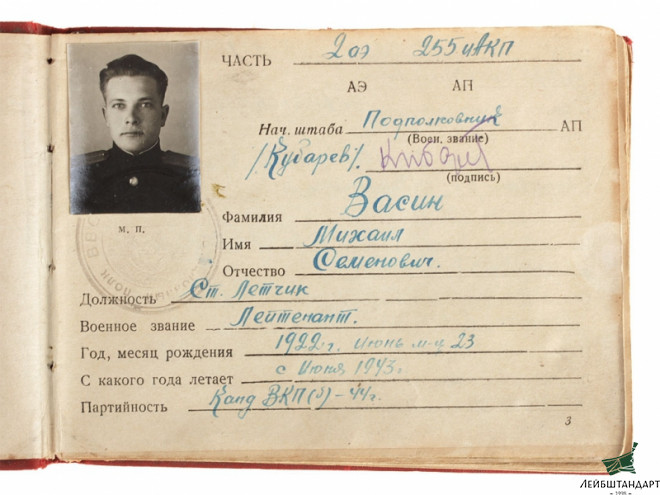 ЧАСТЬ 2аэ 255 иАКП
АЭ АП
Нач. штаба Подполковник АП
(Воен. звание)
/Кубарев/.
(подпись)
Фамилия Васин
М. П.
Имя Михаил
Отчество Семенович.
Должность Ст. Летчик
Военное звание Лейтенант.
Год, месяц рождения 1922 г. Июнь м-ц 23
С какого года летает с Июня 1943г.
Партийность Канд ВКП(б)-44г.
3
ЛЕЙБШТАНДАРТ